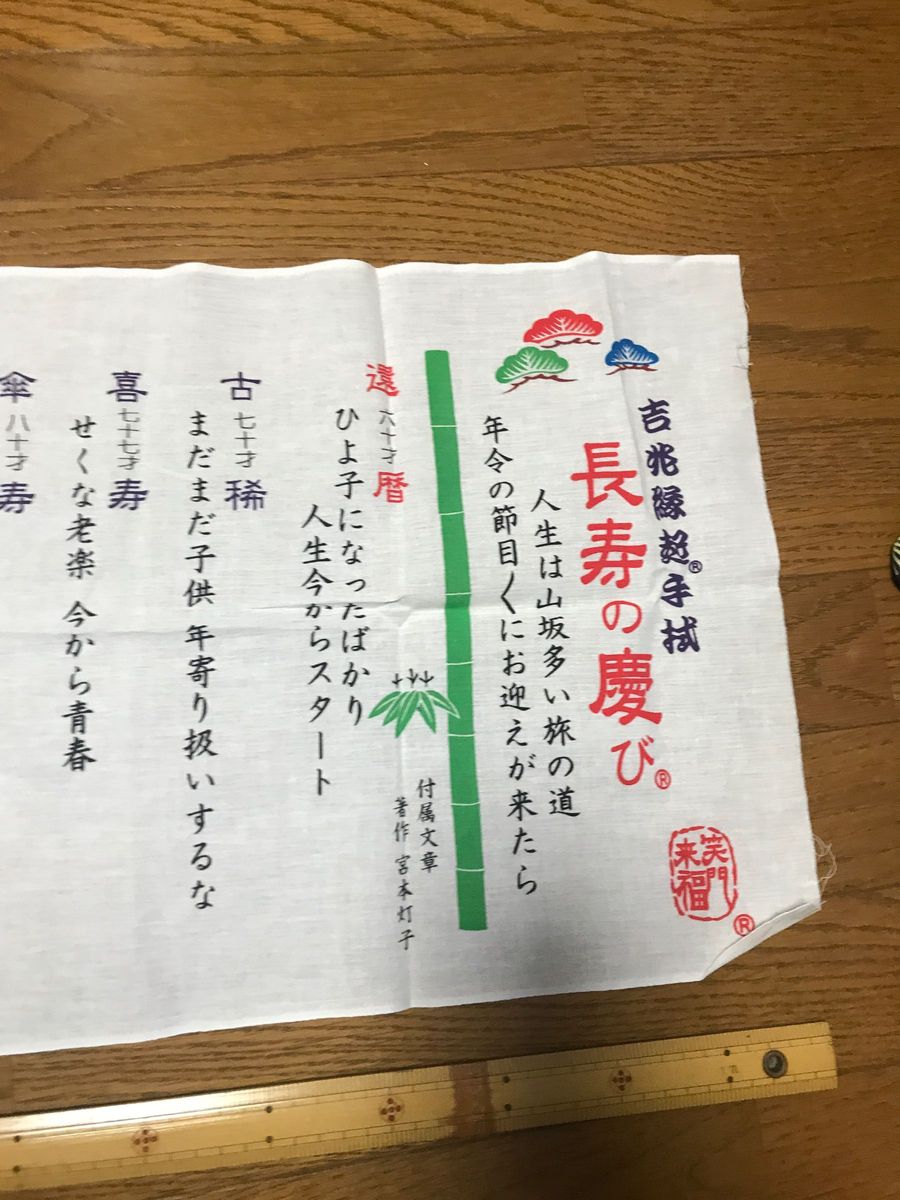 吉兆縁起®手拭
長寿の慶び®
人生は山坂多い旅の道
年令の節目くにお迎えが来たら
笑門
来福
®
付属文章
著作 宮本灯子
還暦
六十才
ひよ子になったばかり
人生今からスタート
古稀
七十才
まだまだ子供 年寄り扱いするな
喜寿
七十七才
せくな老楽 今から青春
傘寿
八十才